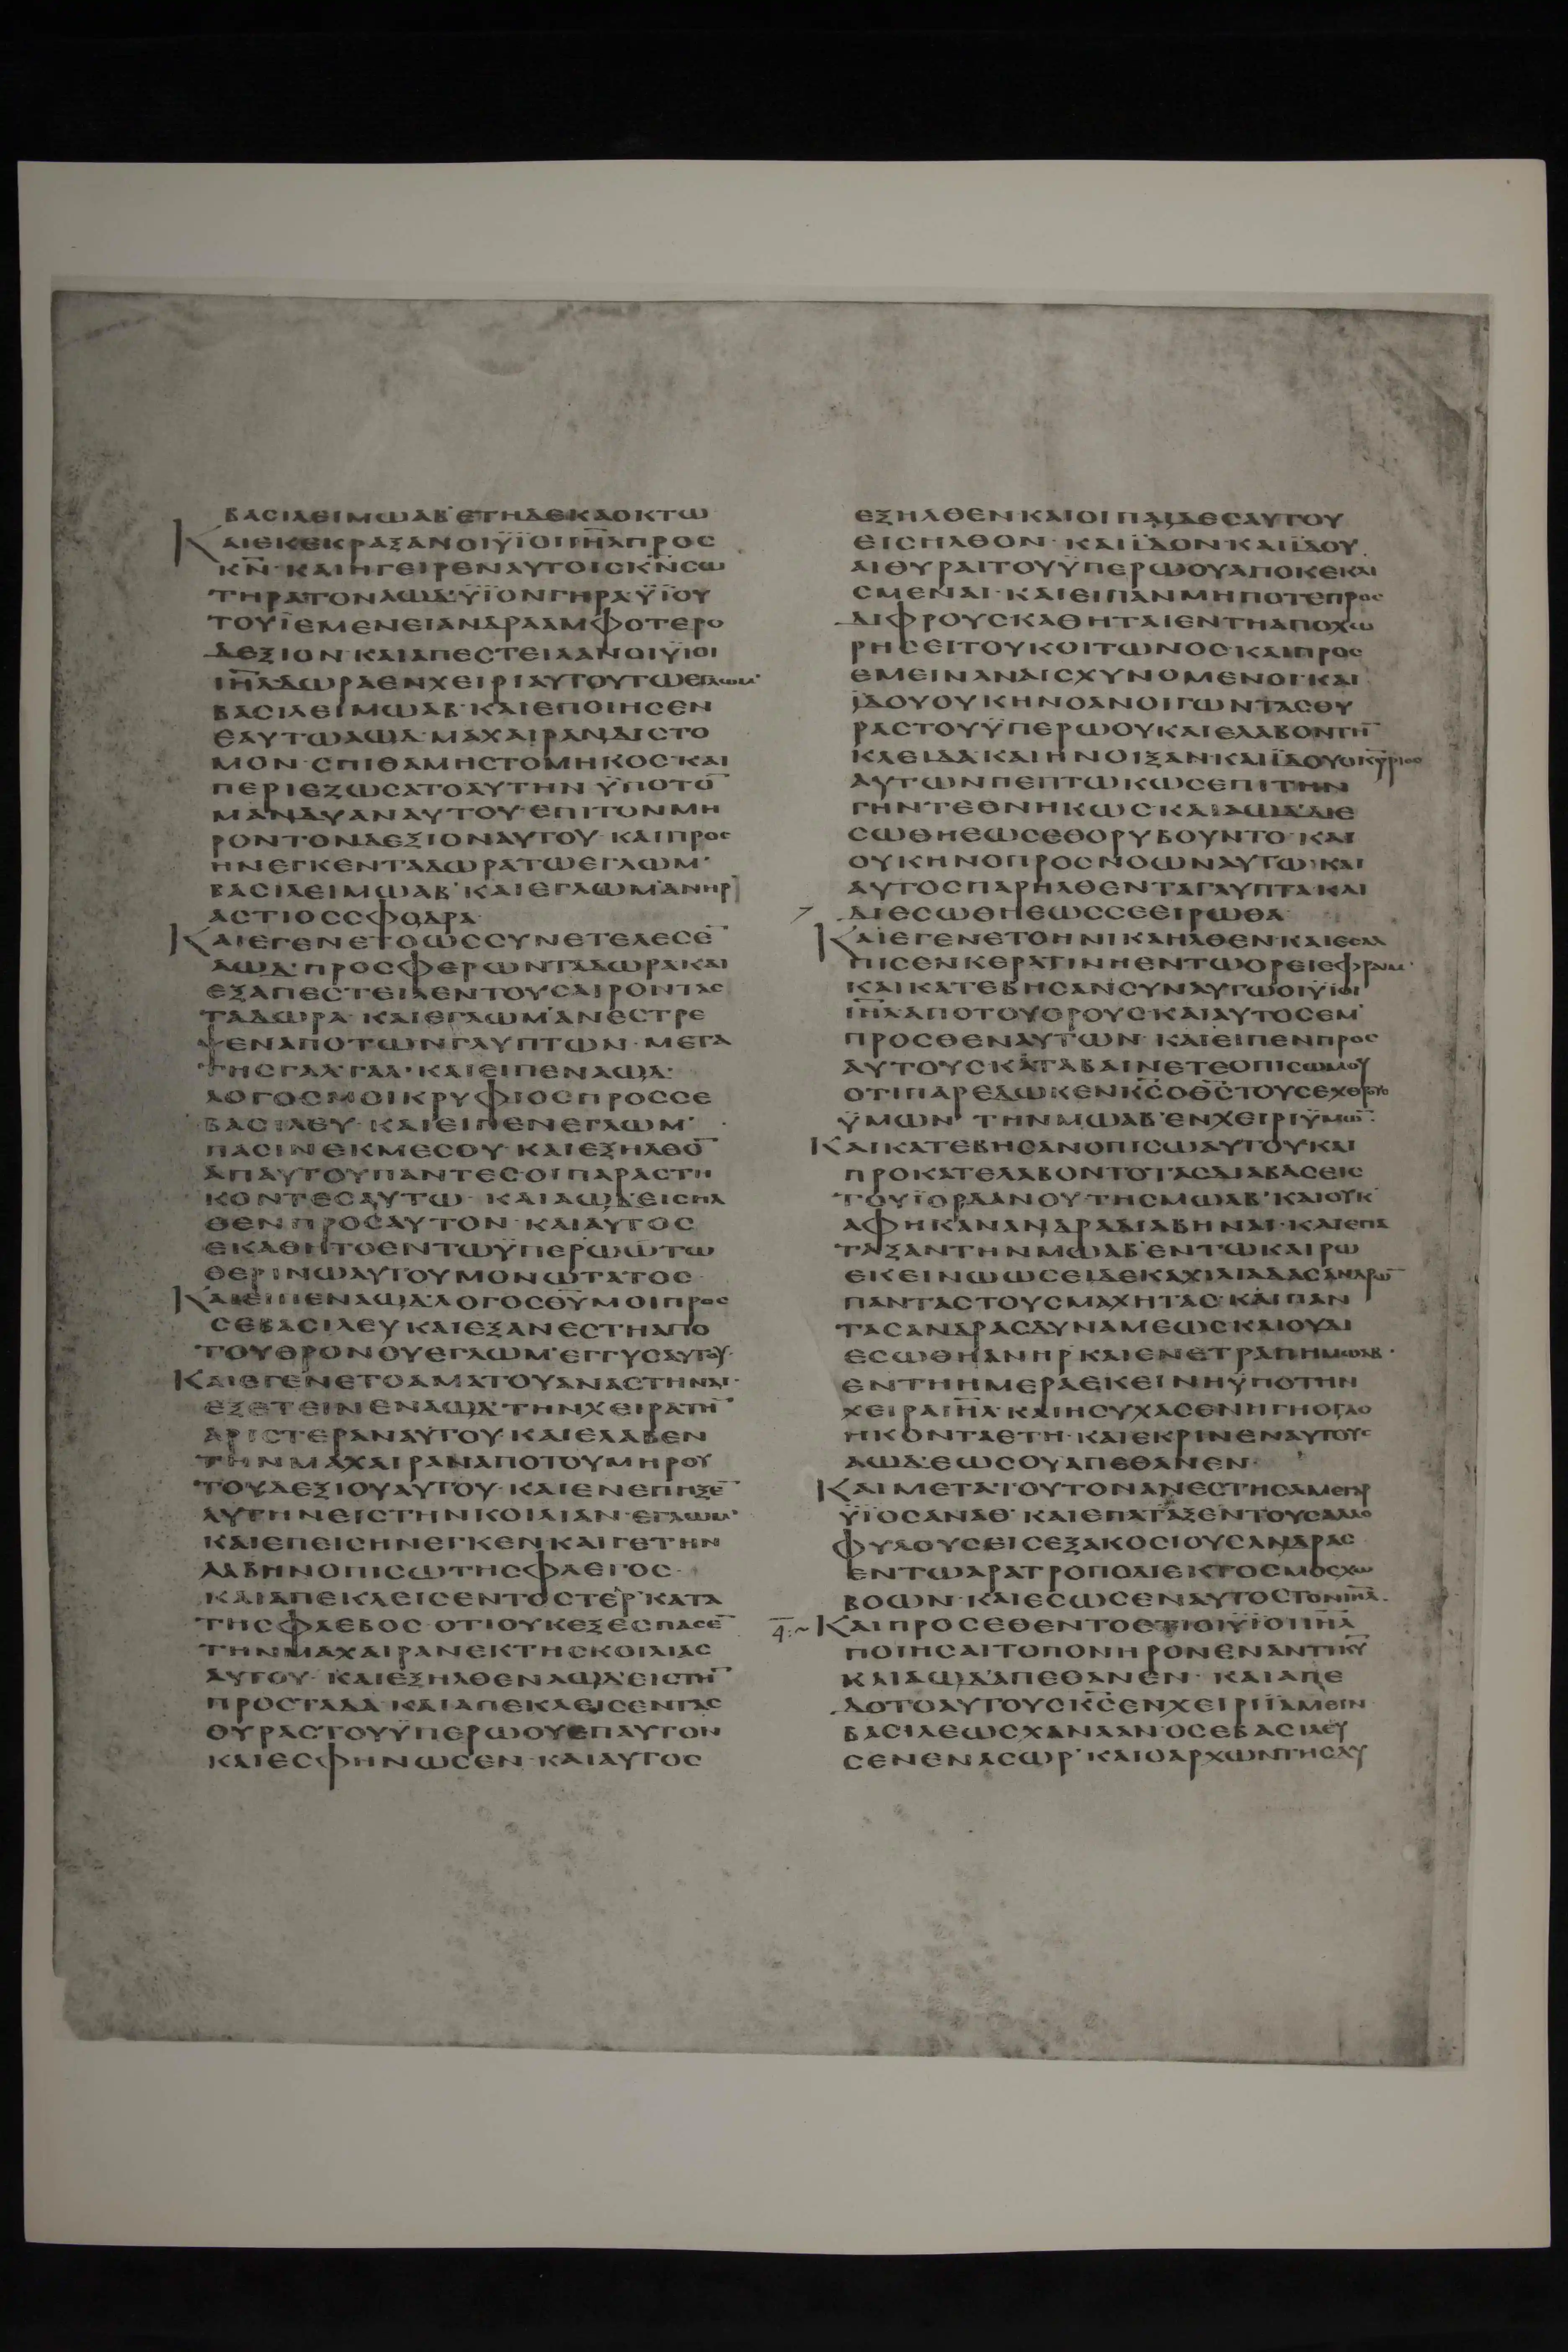 ΒΑCΙΛΕΙΜΩΑΒ ΕΤΗΔΕΚΑΟΚΤΩ
ΚΑΙΕΚΕΚΡΑΞΑΝΟΙΫΙΟΙΙΗ̅Λ̅ΠΡΟC
Κ̅Ν̅· ΚΑΙΗΓΕΙΡΕΝΑΥΤΟΙCΚ̅Ν̅CΩ
ΤΗΡΑΤΟΝΑΩΔ·ΫΪΟΝΓΗΡΑ·ΫΪΟΥ
ΤΟΥΪΕΜΕΝΕΙΑΝΔΡΑΑΜΦΟΤΕΡΟ
ΔΕΞΙΟΝ·ΚΑΙΑΠΕCΤΕΙΛΑΝΟΙΫΙΟΙ
ΙΗ̅Λ̅ΔΩΡΑΕΝΧΕΙΡΙΑΥΤΟΥΤΩΕΓΛΩΜ·
ΒΑCΙΛΕΙΜΩΑΒ·ΚΑΙΕΠΟΙΗCΕΝ
ΕΑΥΤΩΑΩΔ·ΜΑΧΑΙΡΑΝΔΙCΤΟ
ΜΟΝ·CΠΙΘΑΜΗCΤΟΜΗΚΟC·ΚΑΙ
ΠΕΡΙΕΖΩCΑΤΟΑΥΤΗΝ ΫΠΟΤΟ̅
ΜΑΝΔΥΑΝΑΥΤΟΥ·ΕΠΙΤΟΝΜΗ
ΡΟΝΤΟΝΔΕΞΙΟΝΑΥΤΟΥ·ΚΑΙΠΡΟC
ΗΝΕΓΚΕΝΤΑΔΩΡΑΤΩΕΓΛΩΜ·
ΒΑCΙΛΕΙΜΩΑΒ·ΚΑΙΕΓΛΩΜ·ΑΝΗΡ
ΑCΤΙΟCCΦΟΔΡΑ
ΚΑΙΕΓΕΝΕΤΟΩCCΥΝΕΤΕΛΕCΕ̅
ΑΩΔ·ΠΡΟCΦΕΡΩΝΤΑΔΩΡΑ·ΚΑΙ
ΕΞΑΠΕCΤΕΙΛΕΝΤΟΥCΑΙΡΟΝΤΑC
ΤΑΔΩΡΑ·ΚΑΙΕΓΛΩΜ·ΑΝΕCΤΡΕ
ΨΕΝΑΠΟΤΩΝΓΛΥΠΤΩΝ·ΜΕΤΑ
ΤΗCΓΑΛΓΑΛ·ΚΑΙΕΙΠΕΝΑΩΔ·
ΛΟΓΟCΜΟΙΚΡΥΦΙΟCΠΡΟCCΕ
ΒΑCΙΛΕΥ·ΚΑΙΕΙΠΕΝΕΓΛΩΜ·
ΠΑCΙΝΕΚΜΕCΟΥ·ΚΑΙΕΞΗΛΘΟ̅
ΑΠΑΥΤΟΥΠΑΝΤΕCΟΙΠΑΡΑCΤΗ
ΚΟΝΤΕCΑΥΤΩ·ΚΑΙΑΩΔ·ΕΙCΗΛ
ΘΕΝΠΡΟCΑΥΤΟΝ·ΚΑΙΑΥΤΟC
ΕΚΑΘΗΤΟΕΝΤΩΫΠΕΡΩΩΤΩ
ΘΕΡΙΝΩΑΥΤΟΥΜΟΝΩΤΑΤΟC·
ΚΑΙΕΙΠΕΝΑΩΔ·ΛΟΓΟCΘ̅Υ̅ΜΟΙΠΡΟC
CΕΒΑCΙΛΕΥ·ΚΑΙΕΞΑΝΕCΤΗΑΠΟ
ΤΟΥΘΡΟΝΟΥΕΓΛΩΜ·ΕΓΓΥCΑΥΤΟΥ·
ΚΑΙΕΓΕΝΕΤΟΑΜΑΤΟΥΑΝΑCΤΗΝΑΙ·
ΕΞΕΤΕΙΝΕΝΑΩΔ·ΤΗΝΧΕΙΡΑΤΗ̅
ΑΡΙCΤΕΡΑΝΑΥΤΟΥ·ΚΑΙΕΛΑΒΕΝ
ΤΗΝΜΑΧΑΙΡΑΝΑΠΟΤΟΥΜΗΡΟΥ
ΤΟΥΔΕΞΙΟΥΑΥΤΟΥ·ΚΑΙΕΝΕΠΗΞΕ̅
ΑΥΤΗΝΕΙCΤΗΝΚΟΙΛΙΑΝ·ΕΓΛΩΜ·
ΚΑΙΕΠΕΙCΗΝΕΓΚΕΝΚΑΙΓΕΤΗΝ
ΛΑΒΗΝΟΠΙCΩΤΗCΦΛΕΓΟC·
ΚΑΙΑΠΕΚΛΕΙCΕΝΤΟCΤΕΡ·ΚΑΤΑ
ΤΗCΦΛΕΒΟC·ΟΤΙΟΥΚΕΞΕCΠΑCΕ̅
ΤΗΝΜΑΧΑΙΡΑΝΕΚΤΗCΚΟΙΛΙΑC
ΑΥΤΟΥ·ΚΑΙΕΞΗΛΘΕΝΑΩΔ·ΕΙCΤΗ̅
ΠΡΟCΤΑΔΑ·ΚΑΙΑΠΕΚΛΕΙCΕΝΤΑC
ΘΥΡΑCΤΟΥΫΠΕΡΩΟΥΕΠΑΥΤΟΝ
ΚΑΙΕCΦΗΝΩCΕΝ·ΚΑΙΑΥΤΟC
ΕΞΗΛΘΕΝ·ΚΑΙΟΙΠΑΙΔΕCΑΥΤΟΥ
ΕΙCΗΛΘΟΝ·ΚΑΙΪΔΟΝ·ΚΑΙΪΔΟΥ
ΑΙΘΥΡΑΙΤΟΥΫΠΕΡΩΟΥΑΠΟΚΕΚΛΙ
CΜΕΝΑΙ·ΚΑΙΕΙΠΑΝΜΗΠΟΤΕΠΡΟC
ΔΙΦΡΟΥCΚΑΘΗΤΑΙΕΝΤΗΑΠΟΧΩ
ΡΗCΕΙΤΟΥΚΟΙΤΩΝΟC·ΚΑΙΠΡΟC
ΕΜΕΙΝΑΝΑΙCΧΥΝΟΜΕΝΟΙ·ΚΑΙ
ΪΔΟΥΟΥΚΗΝΟΑΝΟΙΓΩΝΤΑCΘΥ
ΡΑCΤΟΥΫΠΕΡΩΟΥ·ΚΑΙΕΛΑΒΟΝΤΗ̅
ΚΛΕΙΔΑ·ΚΑΙΗΝΟΙΞΑΝ·ΚΑΙΪΔΟΥΟΚΥΡΙΟC
ΑΥΤΩΝΠΕΠΤΩΚΩCΕΠΙΤΗΝ
ΓΗΝΤΕΘΝΗΚΩC·ΚΑΙΑΩΔ·ΔΙΕ
CΩΘΗΕΩCΕΘΟΡΥΒΟΥΝΤΟ·ΚΑΙ
ΟΥΚΗΝΟΠΡΟCΝΟΩΝΑΥΤΩ·ΚΑΙ
ΑΥΤΟCΠΑΡΗΛΘΕΝΤΑΓΛΥΠΤΑ·ΚΑΙ
ΔΙΕCΩΘΗΕΩCCΕΕΙΡΩΘΑ·
ΚΑΙΕΓΕΝΕΤΟΗΝΙΚΑΗΛΘΕΝ·ΚΑΙΕCΑΛ
ΠΙCΕΝΚΕΡΑΤΙΝΗΕΝΤΩΟΡΕΙΕΦΡΑΙΜ·
ΚΑΙΚΑΤΕΒΗCΑΝCΥΝΑΥΤΩΟΙΫΙΟΙ
ΙΗ̅Λ̅ΑΠΟΤΟΥΟΡΟΥC·ΚΑΙΑΥΤΟCΕΜ
ΠΡΟCΘΕΝΑΥΤΩΝ·ΚΑΙΕΙΠΕΝΠΡΟC
ΑΥΤΟΥCΚΑΤΑΒΑΙΝΕΤΕΟΠΙCΩΜΟΥ
ΟΤΙΠΑΡΕΔΩΚΕΝΚ̅C̅ΟΘ̅C̅ΤΟΥCΕΧΘΡΟΥC
ΫΜΩΝ ΤΗΝΜΩΑΒ·ΕΝΧΕΙΡΙΫΜΩ̅·
ΚΑΙΚΑΤΕΒΗCΑΝΟΠΙCΩΑΥΤΟΥ·ΚΑΙ
ΠΡΟΚΑΤΕΛΑΒΟΝΤΟΤΑCΔΙΑΒΑCΕΙC
ΤΟΥΪΟΡΔΑΝΟΥ·ΤΗCΜΩΑΒ·ΚΑΙΟΥΚ
ΑΦΗΚΑΝΑΝΔΡΑΔΙΑΒΗΝΑΙ·ΚΑΙΕΠΑ
ΤΑΞΑΝΤΗΝΜΩΑΒ·ΕΝΤΩΚΑΙΡΩ
ΕΚΕΙΝΩΩCΕΙΔΕΚΑΧΙΛΙΑΔΑCΑΝΔΡΩ̅
ΠΑΝΤΑCΤΟΥCΜΑΧΗΤΑC·ΚΑΙΠΑΝ
ΤΑCΑΝΔΡΑCΔΥΝΑΜΕΩC·ΚΑΙΟΥΔΙ
ΕCΩΘΗΑΝΗΡ·ΚΑΙΕΝΕΤΡΑΠΗΜΩΑΒ·
ΕΝΤΗΗΜΕΡΑΕΚΕΙΝΗΫΠΟΤΗΝ
ΧΕΙΡΑΙΗ̅Λ̅·ΚΑΙΗCΥΧΑCΕΝΗΓΗΟΓΔΟ
ΗΚΟΝΤΑΕΤΗ·ΚΑΙΕΚΡΙΝΕΝΑΥΤΟΥC
ΑΩΔ·ΕΩCΟΥΑΠΕΘΑΝΕΝ·
ΚΑΙΜΕΤΑΤΟΥΤΟΝΑΝΕCΤΗCΑΜΕΓΑΡ
ΫΪΟCΑΝΑΘ·ΚΑΙΕΠΑΤΑΞΕΝΤΟΥCΑΛΛΟ
ΦΥΛΟΥCΕΙCΕΞΑΚΟCΙΟΥCΑΝΔΡΑC
ΕΝΤΩΑΡΑΤΡΟΠΟΔΙΕΚΤΟCΜΟCΧΩ
ΒΟΩΝ·ΚΑΙΕCΩCΕΝΑΥΤΟCΤΟΝΙΗ̅Λ̅·
ΚΑΙΠΡΟCΕΘΕΝΤΟΕΤΙΟΙΫΙΟΙΙΗ̅Λ̅
ΠΟΙΗCΑΙΤΟΠΟΝΗΡΟΝΕΝΑΝΤΙΚ̅Υ̅
ΚΑΙΑΩΔ·ΑΠΕΘΑΝΕΝ·ΚΑΙΑΠΕ
ΔΟΤΟΑΥΤΟΥCΚ̅C̅ΕΝΧΕΙΡΙΪΑΜΕΙΝ
ΒΑCΙΛΕΩCΧΑΝΑΑΝ·ΟCΕΒΑCΙΛΕΥ
CΕΝΕΝΑCΩΡ·ΚΑΙΟΑΡΧΩΝΤΗCΔΥ